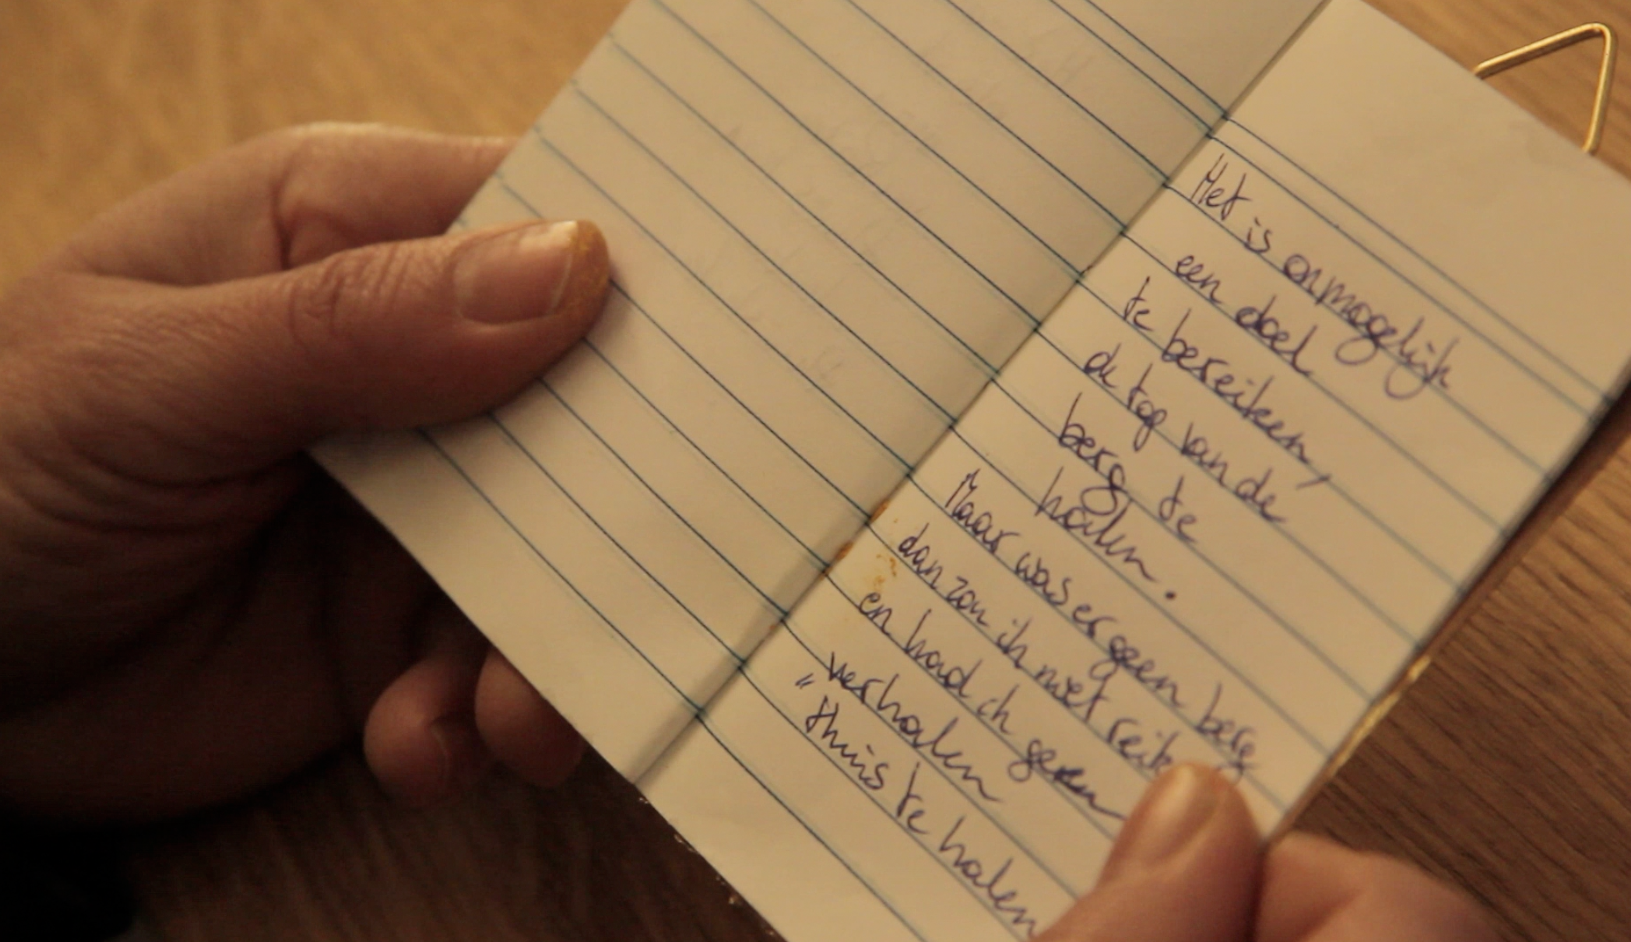 Het is onmogelijk
een doel
te bereiken,
de top van de
berg te
halen.
Maar was er geen berg
dan zou ik niet
en had ik geen
verhalen
"thuis te halen